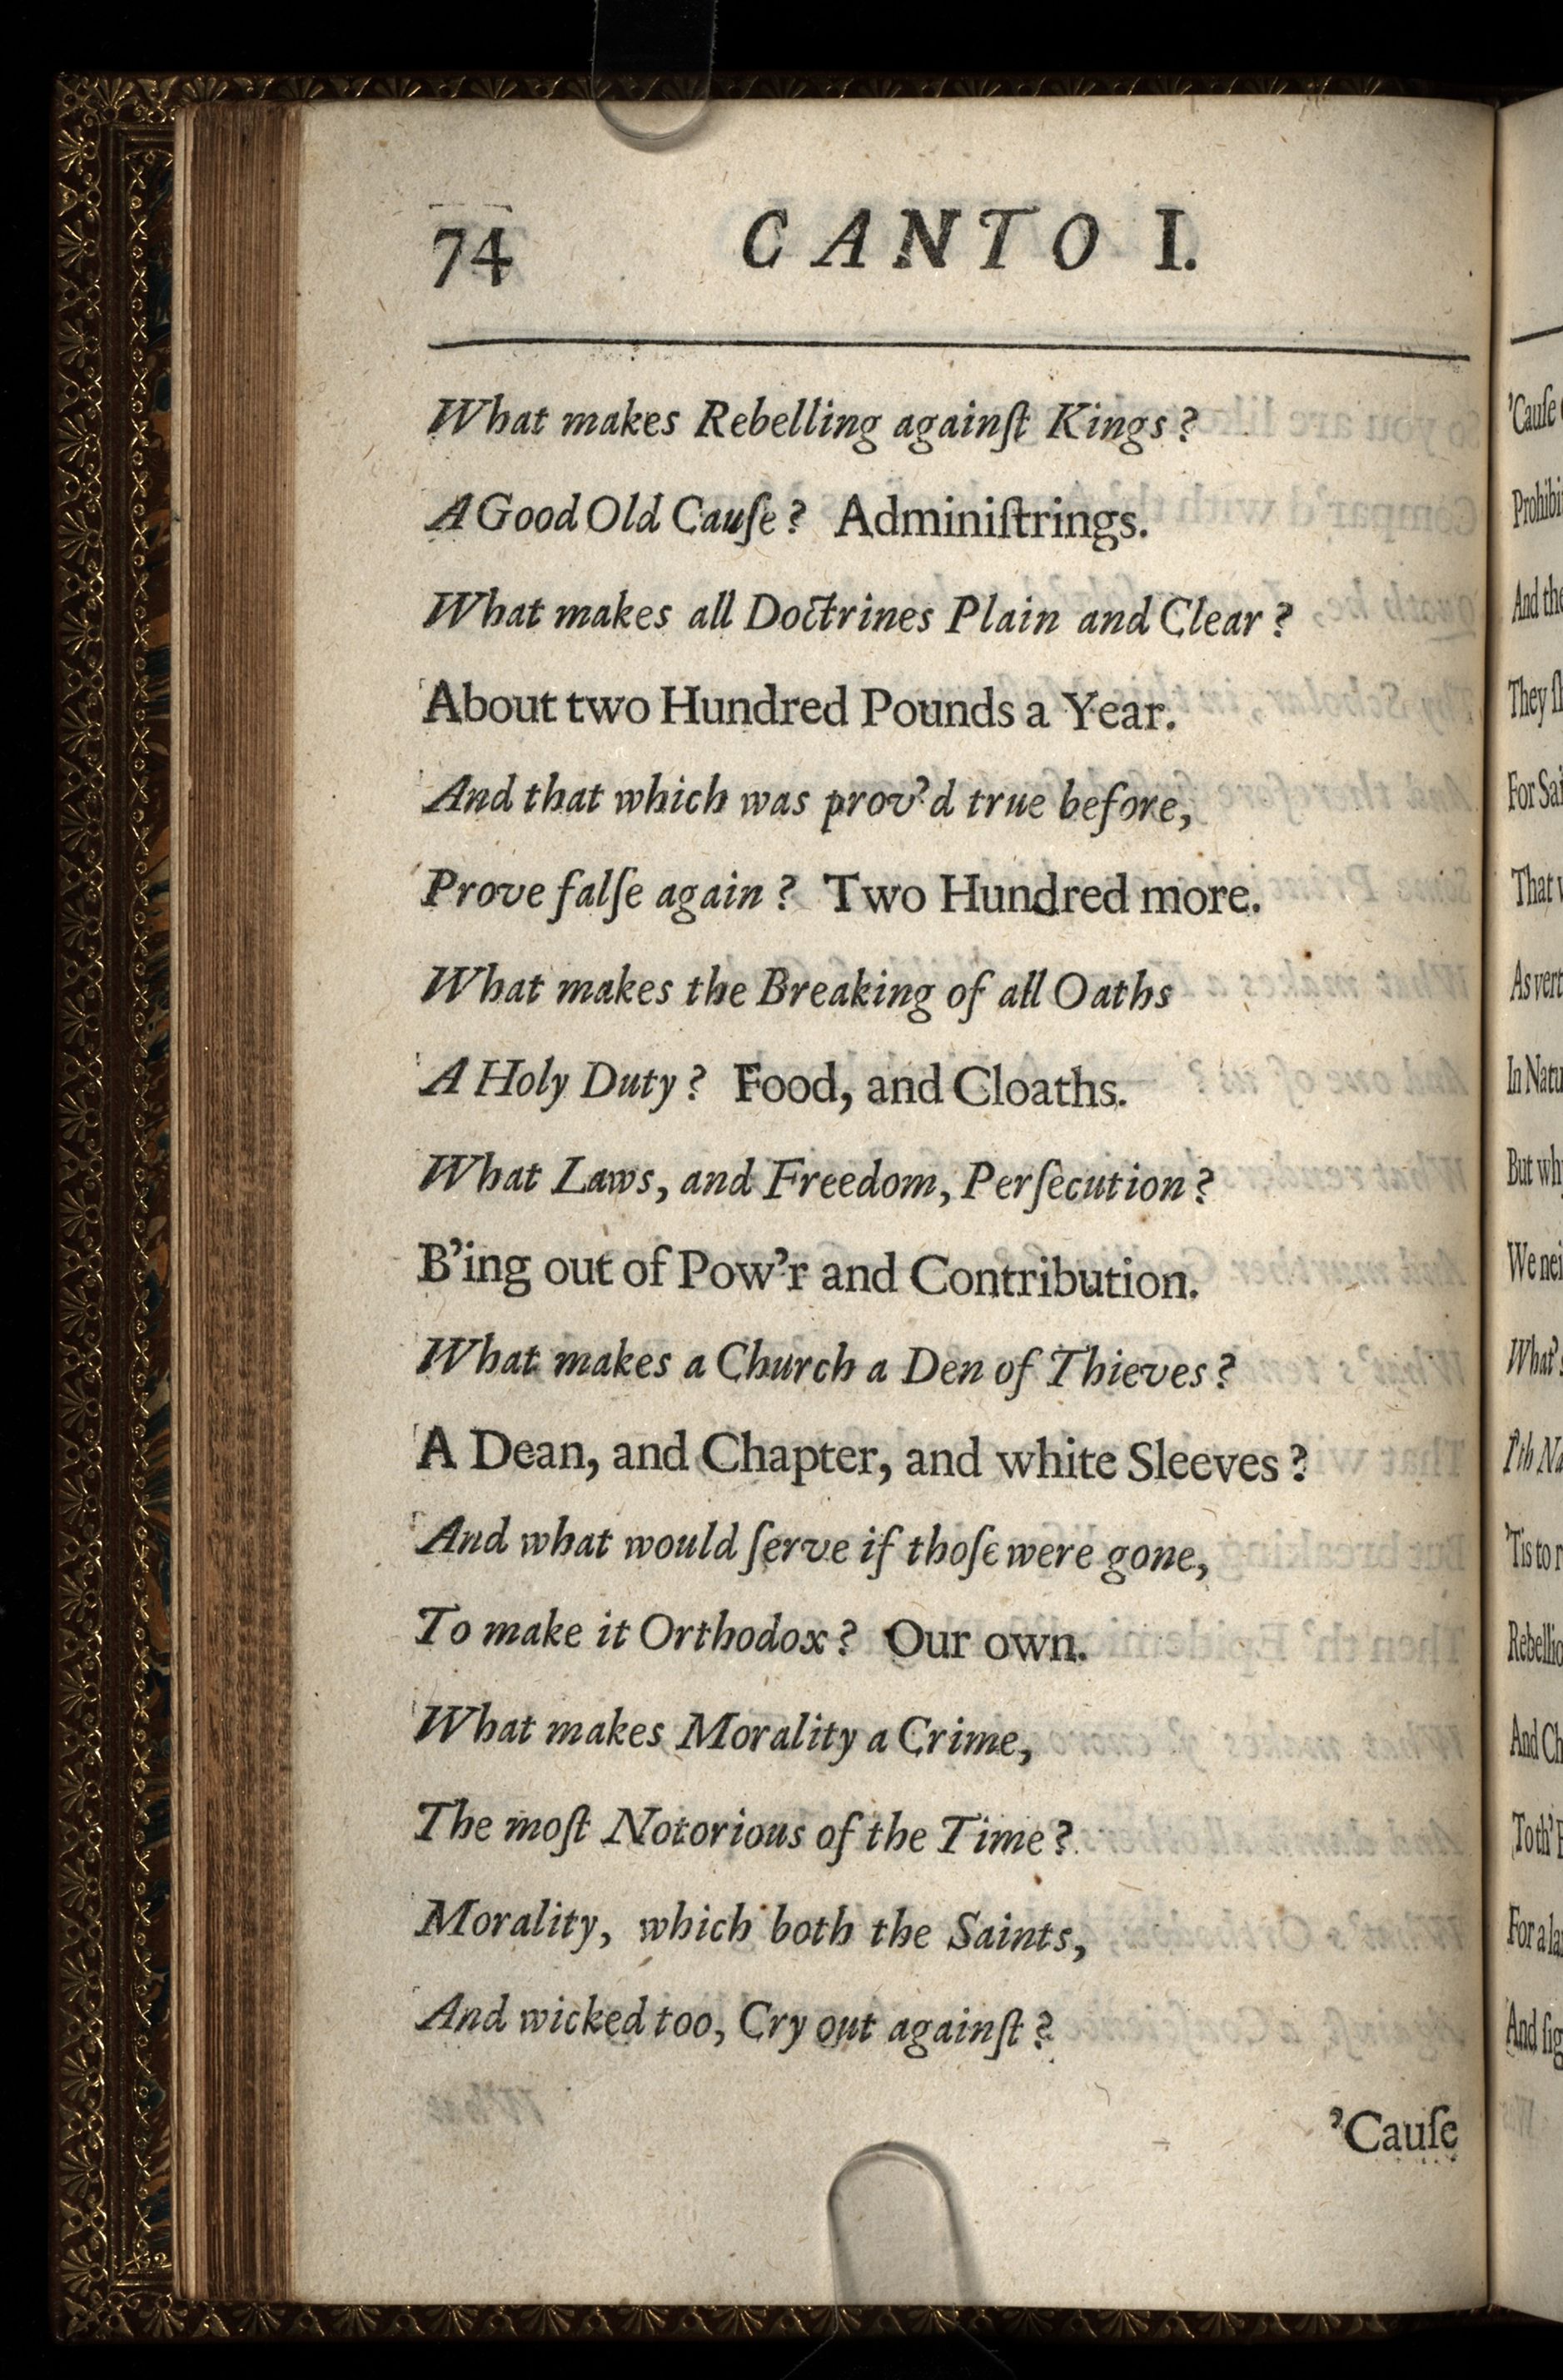 74 CANTO I.
What makes Rebelling againſt Kings?
A Good Old Cauſe? Adminiſtrings.
What makes all Doctrines Plain and Clear?
About two Hundred Pounds a Year.
And that which was prov'd true before,
Prove falſe again? Two Hundred more.
What makes the Breaking of all Oaths
A Holy Duty? Food, and Cloaths.
What Laws, and Freedom, Perſecution?
B'ing out of Pow'r and Contribution.
What makes a Church a Den of Thieves?
A Dean, and Chapter, and white Sleeves?
And what would ſerve if thoſe were gone,
To make it Orthodox? Our own.
What makes Morality a Crime,
The moſt Notorious of the Time?
Morality, which both the Saints,
And wicked too, Cry out againſt?
'Cauſe
'Cauſe
And the
They
For
That
As
In
But
We
What's
'Tis to
And
For a
And